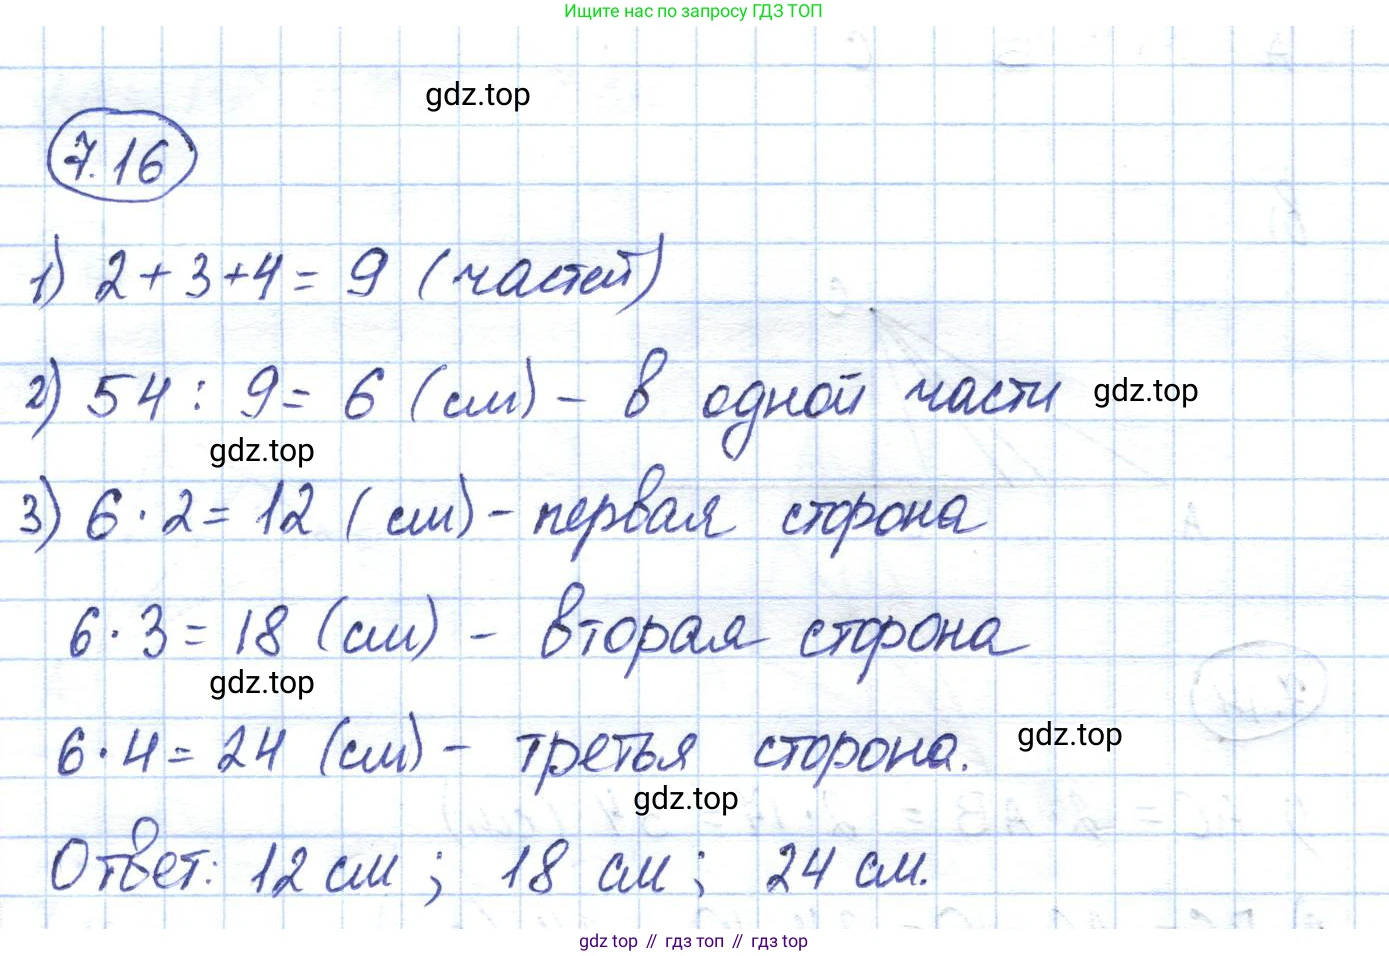 Ищите нас по запросу ГДЗ ТОП
gdz.top
7.16
1) 2 + 3 + 4 = 9 (частей)
2) 54 : 9 = 6 (см) – в одной части
gdz.top
gdz.top
3) 6 · 2 = 12 (см) – первая сторона
6 · 3 = 18 (см) – вторая сторона
gdz.top
6 · 4 = 24 (см) – третья сторона.
gdz.top
gdz.top
Ответ: 12 см ; 18 см ; 24 см.
gdz top // гдз топ // гдз top